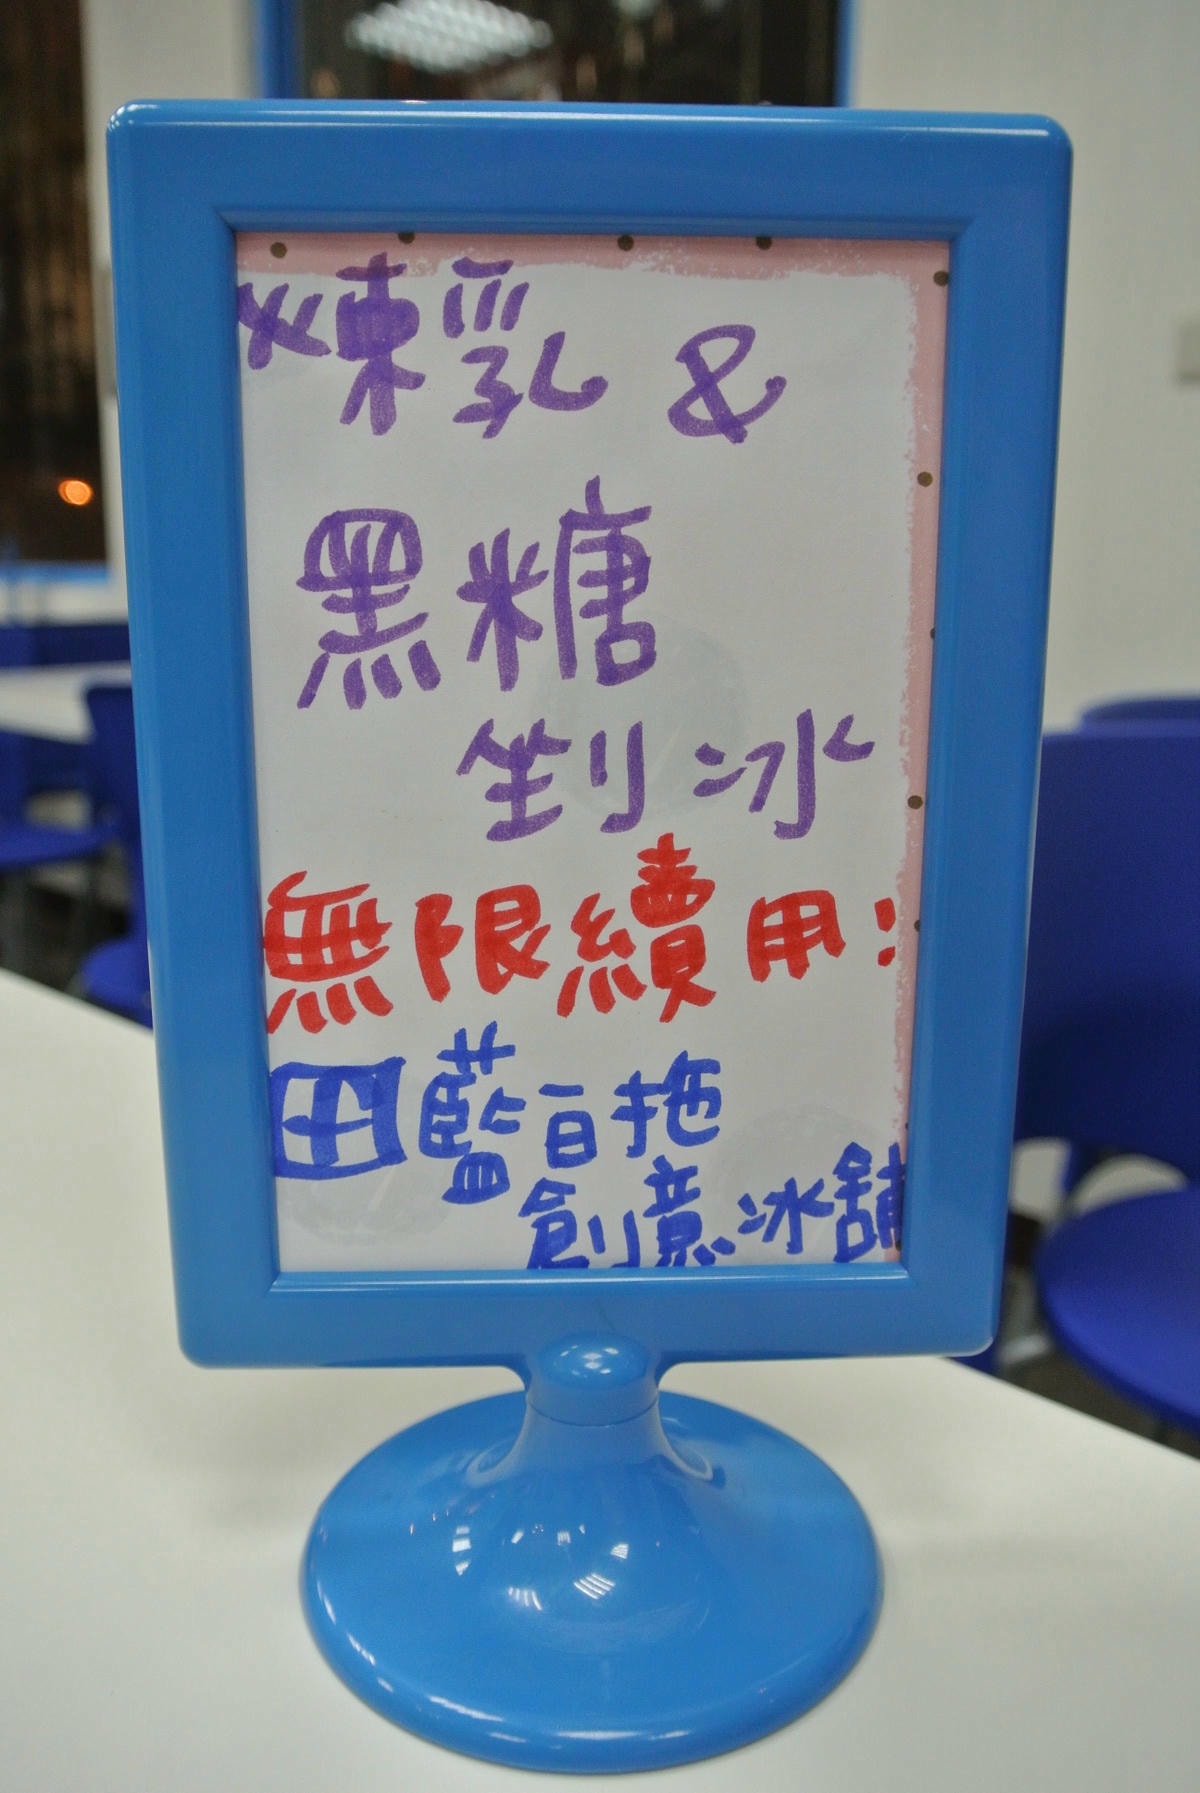 煉乳 &
黑糖
剉冰
無限續用:
田藍白拖
創意冰舖